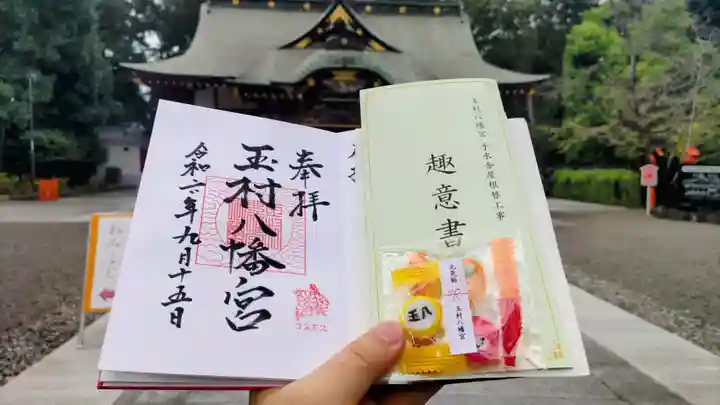 奉拝
玉村八幡宮
令和二年九月十五日
コスモス
玉村八幡宮 手水舎屋根替工事
趣意書
元気飴
玉村八幡宮
玉八